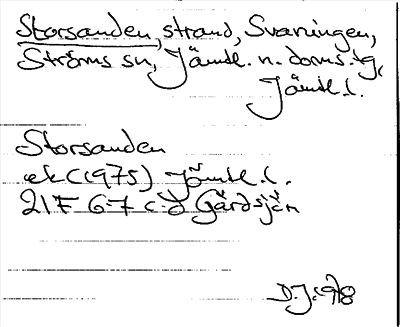 Storsanden, strand, Svaningen,
Ströms sn, Jämtl. n. doms.tg,
Jämtl. l.
Storsanden
ekC(1975) Jämtl. l.
21F 6-7 c-d Gärdsjön
D.J. 1978